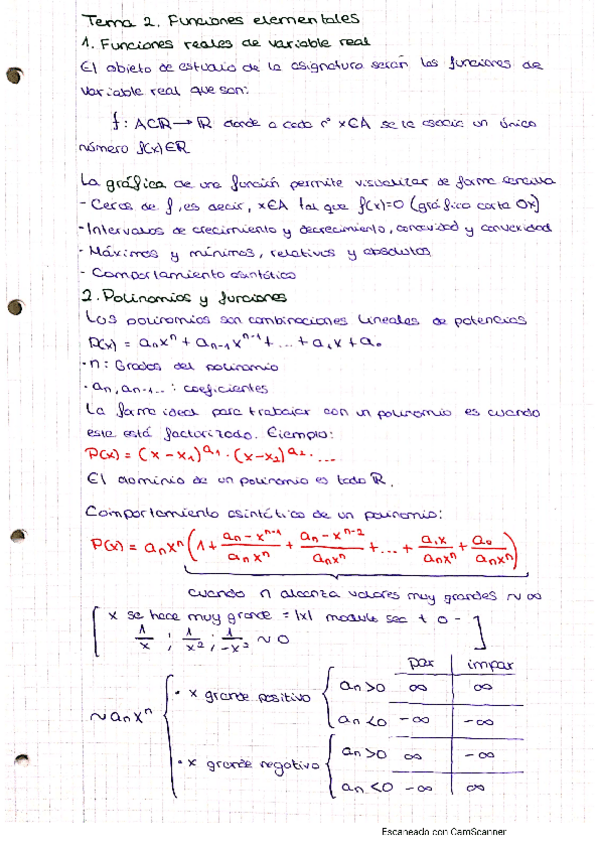 Tema 2. Funciones elementales
1. Funciones reales de variable real
El objeto de estudio de la asignatura serán las funciones de
variable real que son:
f: A⊂ℝ → ℝ donde a cada nº x∈A se le asocia un único
número f(x)∈ℝ
La gráfica de una función permite visualizar de forma sencilla
- Ceros de f, es decir, x∈A tal que f(x)=0 (gráfica corta Ox)
- Intervalos de crecimiento y decrecimiento, concavidad y convexidad
- Máximos y mínimos, relativos y absolutos
- Comportamiento asintótico
2. Polinomios y funciones
Los polinomios son combinaciones lineales de potencias
P(x) = aₙxⁿ + aₙ₋₁xⁿ⁻¹ + ... + a₁x + a₀
· n: Grados del polinomio
· aₙ, aₙ₋₁... : coeficientes
La forma ideal para trabajar con un polinomio es cuando
este está factorizado. Ejemplo:
P(x) = (x - x₁)^a₁ · (x - x₂)^a₂ · ...
El dominio de un polinomio es todo ℝ.
Comportamiento asintótico de un polinomio:
P(x) = aₙxⁿ (1 + aₙ-xⁿ⁻¹/aₙxⁿ + aₙ-xⁿ⁻²/aₙxⁿ + ... + a₁x/aₙxⁿ + a₀/aₙxⁿ)
cuando n alcanza valores muy grandes ~ ∞
[ x se hace muy grande = |x| module sea + o -
1/x ; 1/x² ; 1/-x³ ~ 0 ]
par | impar
~ aₙxⁿ { · x grande positivo { aₙ>0 ∞ | ∞
aₙ<0 -∞ | -∞
· x grande negativo { aₙ>0 ∞ | -∞
aₙ<0 -∞ | ∞
Escaneado con CamScanner